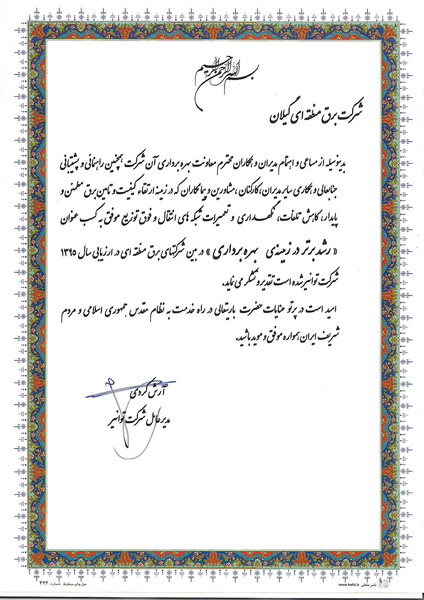 بسم الله الرحمن الرحیم
شرکت برق منطقه ای گیلان
بدینوسیله از مساعی و اهتمام مدیران و همکاران محترم معاونت بهره برداری آن شرکت همچنین راهنمائی و پشتیبانی
جنابعالی و همکاری سایر مدیران، کارکنان، مشاورین و پیمانکاران که در زمینه ارتقاء کیفیت و تامین برق مطمئن و
پایدار، کاهش تلفات، نگهداری و تعمیرات شبکه های انتقال و فوق توزیع موفق به کسب عنوان
« رشد برتر در زمینه ی بهره برداری » در بین شرکتهای برق منطقه ای در ارزیابی سال ۱۳۹۵
شرکت توانیر شده است تقدیر و تشکر می نماید.
امید است در پرتو عنایات حضرت باریتعالی در راه خدمت به نظام مقدس جمهوری اسلامی و مردم
شریف ایران همواره موفق و موید باشید.
آرش کردی
مدیر عامل شرکت توانیر
حق چاپ محفوظ. شماره ۳۲۲